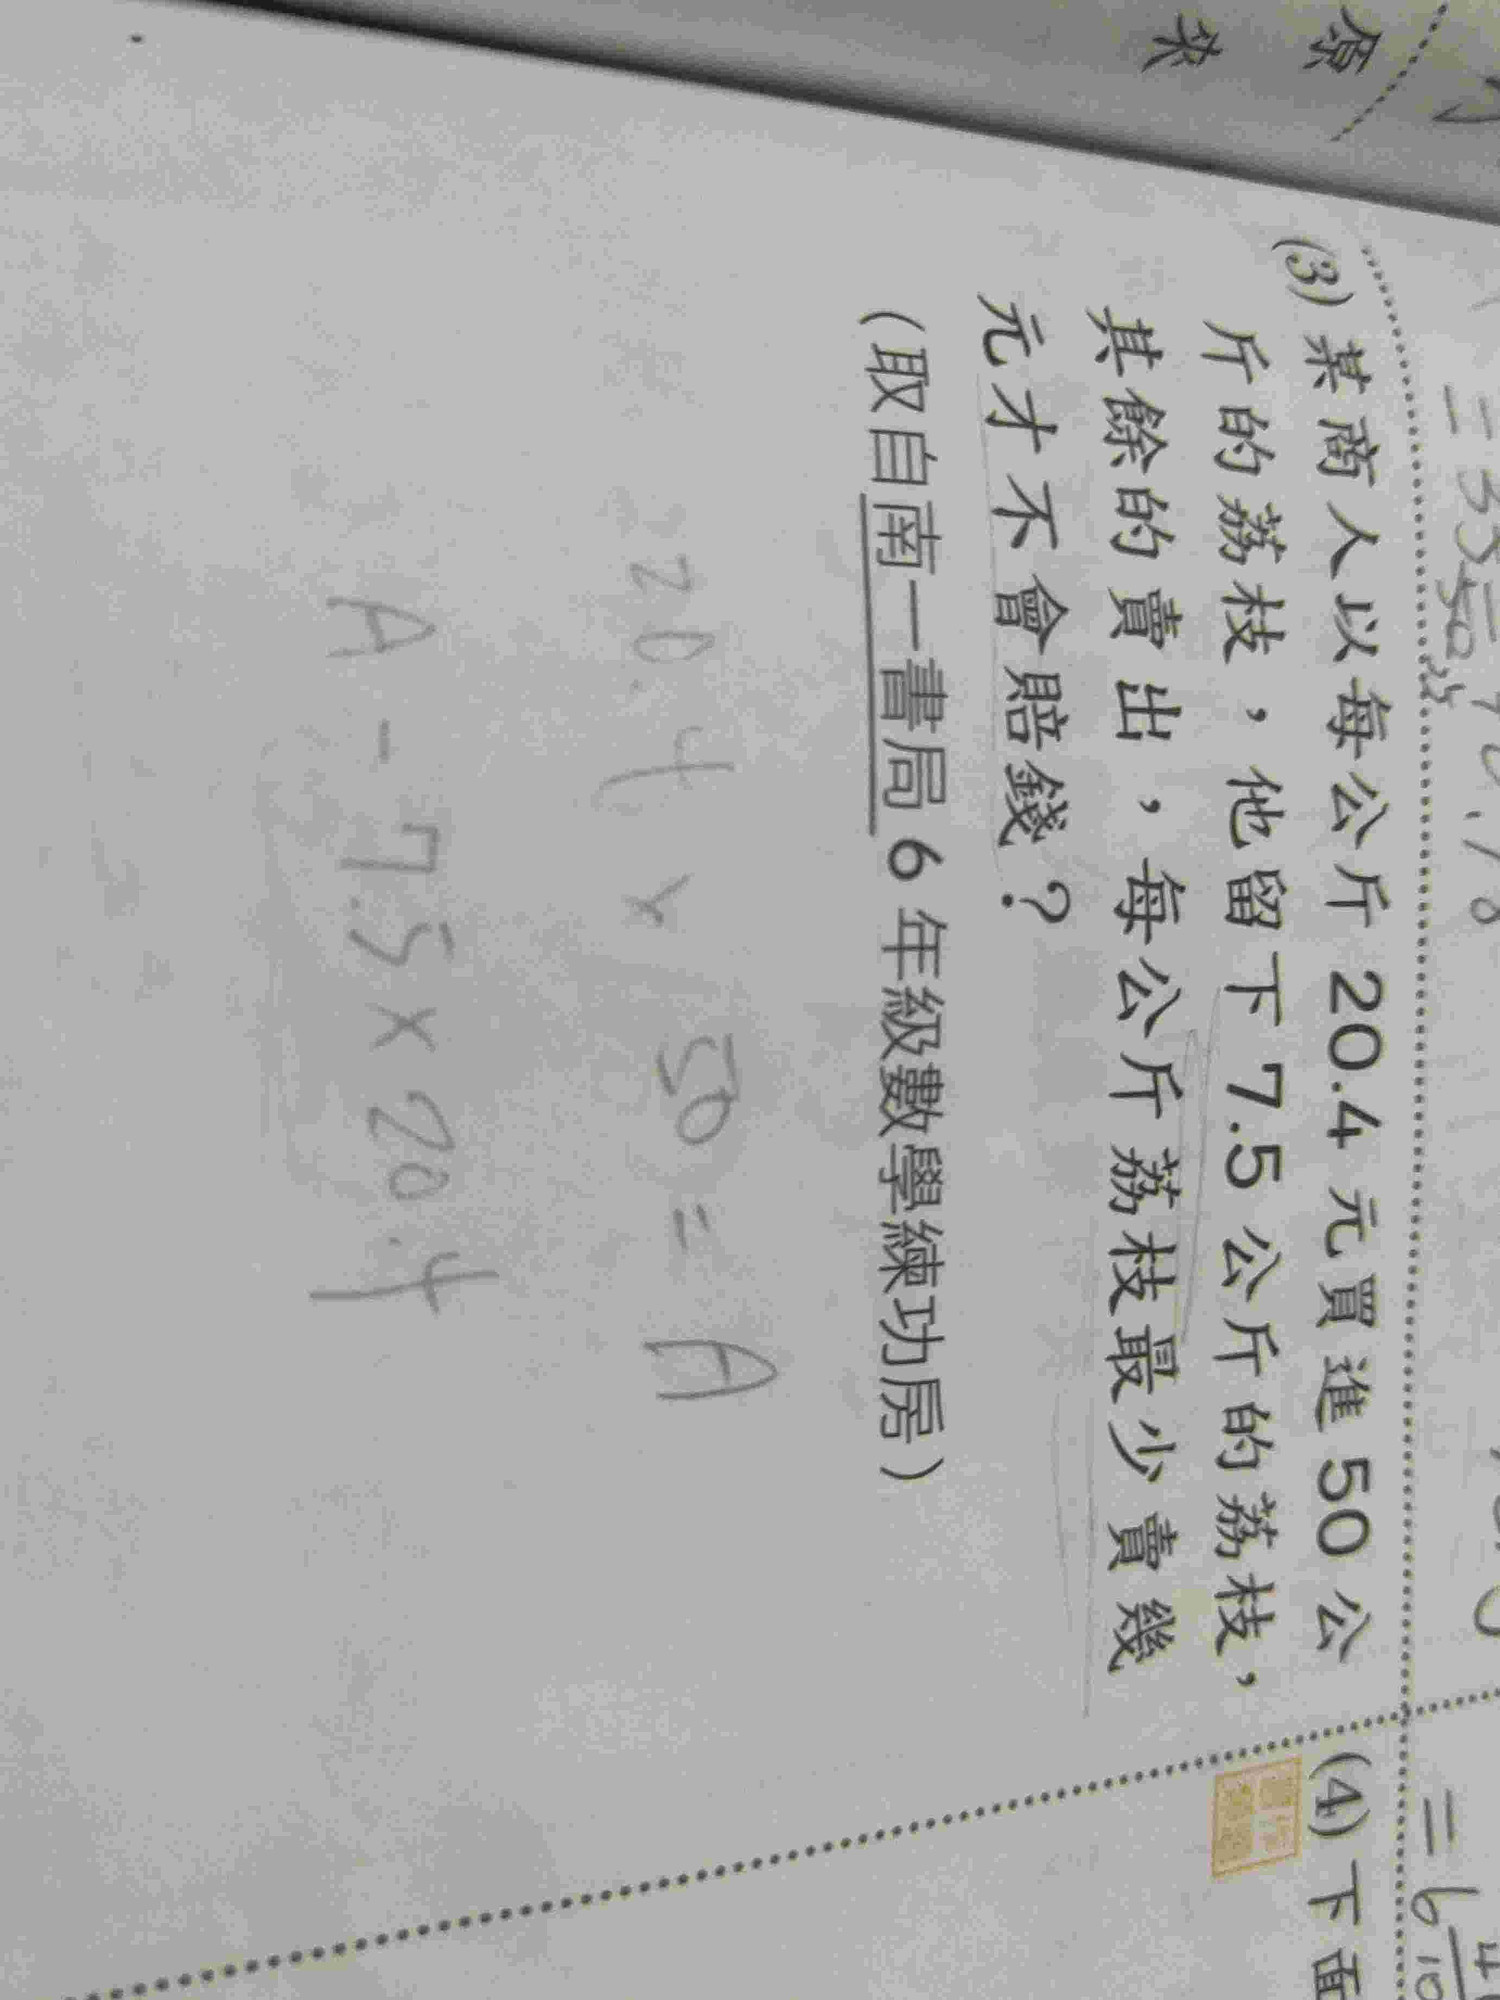 (3) 某商人以每公斤 20.4 元買進 50 公
斤的荔枝，他留下 7.5 公斤的荔枝，
其餘的賣出，每公斤荔枝最少賣幾
元才不會賠錢？
（取自南一書局 6 年級數學練功房）
20.4 × 50 = A
A - 7.5 × 20.4
(4) 下面